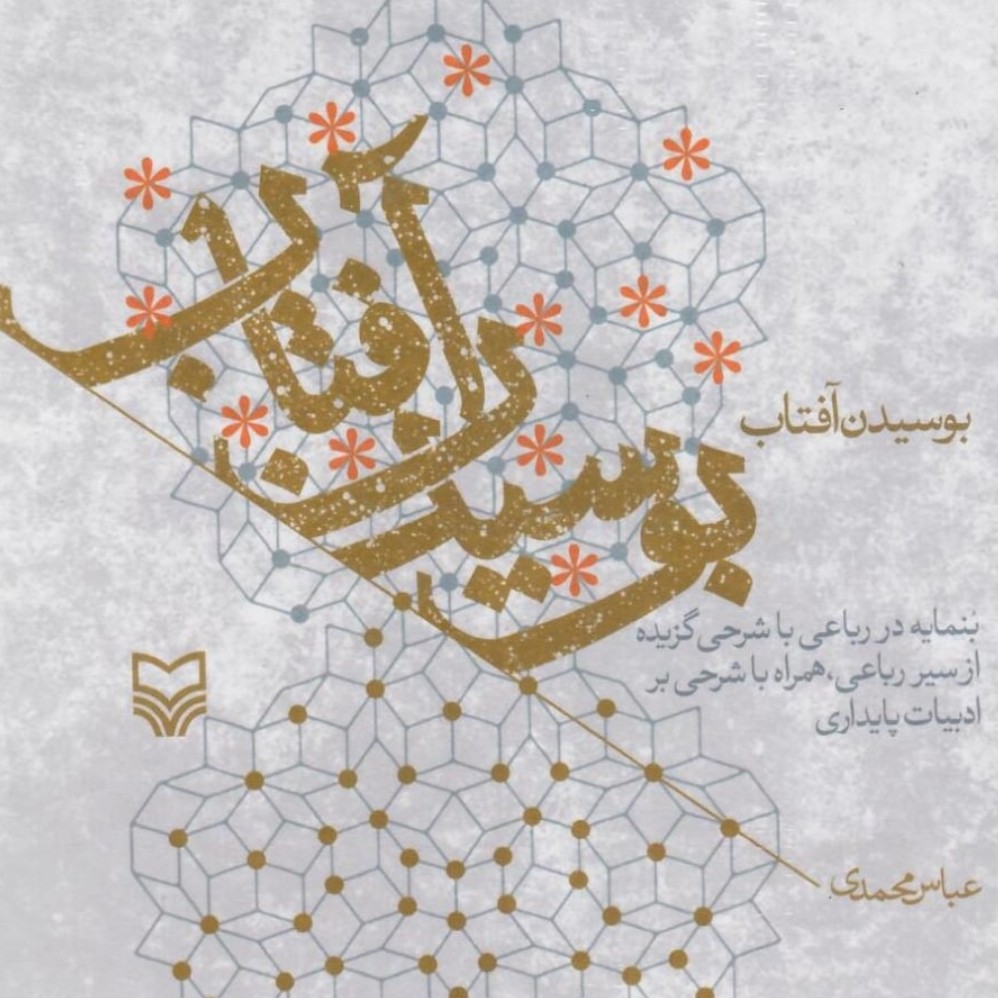 بوسیدن آفتاب
بوسیدن آفتاب
بُنمایه در رباعی با شرحی گزیده
از سیر رباعی، همراه با شرحی بر
ادبیات پایداری
عباس محمدی